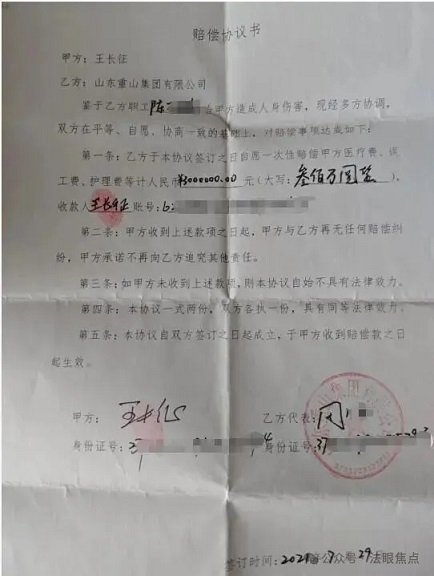 赔偿协议书
甲方：王长征
乙方：山东重山集团有限公司
鉴于乙方职工陈 给甲方造成人身伤害，现经多方协调，
双方在平等、自愿、协商一致的基础上，对赔偿事项达成如下：
第一条：乙方于本协议签订之日自愿一次性赔偿甲方医疗费、误
工费、护理费等计人民币¥3000000.00元（大写：叁佰万圆整）
收款人王长征账号：6
第二条：甲方收到上述款项之日起，甲方与乙方再无任何赔偿纠
纷，甲方承诺不再向乙方追究其他责任。
第三条：如甲方未收到上述款项，则本协议自始不具有法律效力。
第四条：本协议一式两份，双方各执一份，具有同等法律效力。
第五条：本协议自双方签订之日起成立，于甲方收到赔偿款之日
起生效。
甲方：王长征 乙方代表：周
身份证号：3 4 身份证号：37
签订时间：2021 7 29
公众号 法眼焦点